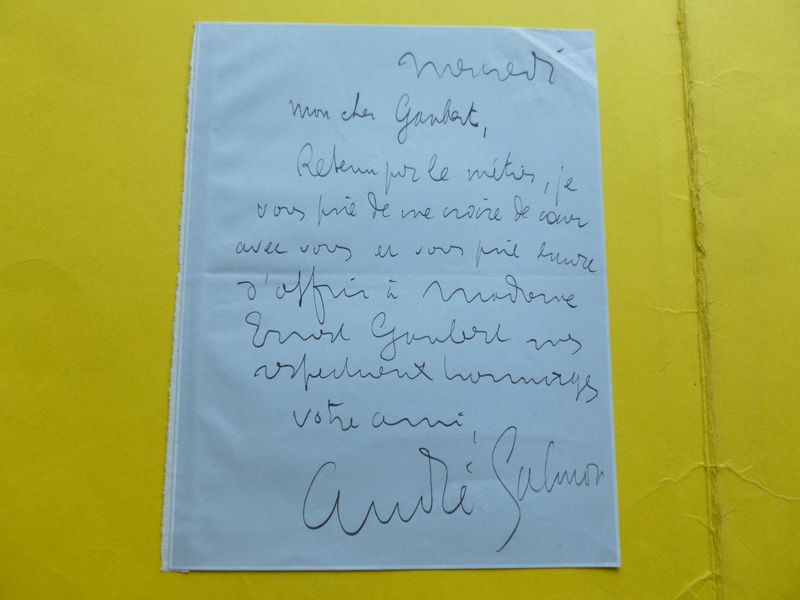 Mercredi
Mon cher Gaubert,
Retenu par le métier, je
vous prie de me croire de cœur
avec vous et vous prie encore
d'offrir à Madame
Ernest Gaubert mes
respectueux hommages
Votre ami,
André Salmon